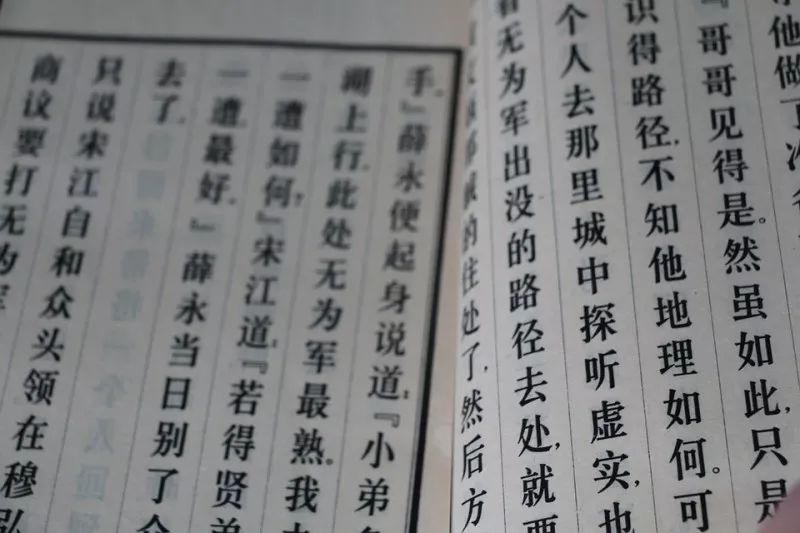 他做了
『哥哥见得是。然虽如此,只是
识得路径,不知他地理如何。可
个人去那里城中探听虚实,也
看无为军出没的路径去处,就要
的住处了,然后方
手。』薛永便起身说道:『小弟
湖上行,此处无为军最熟。我
一遭如何?』宋江道:『若得贤弟
一遭最好。』薛永当日别了众
去了。
只说宋江自和众头领在穆弘
商议要打无为军